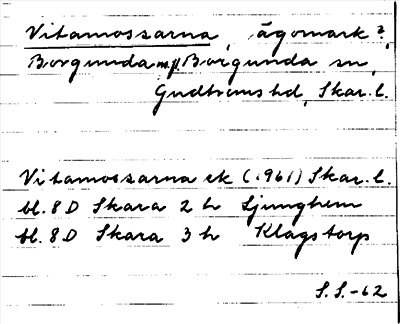 Vitamossarna, ägomark?,
Borgunda m.fl. Borgunda sn,
Gudhems hd, Skar. l.
Vitamossarna ek (1961) Skar. l.
bl. 8D Skara 2h Ljunghem
bl. 8D Skara 3h Klagstorp
S.S.-62